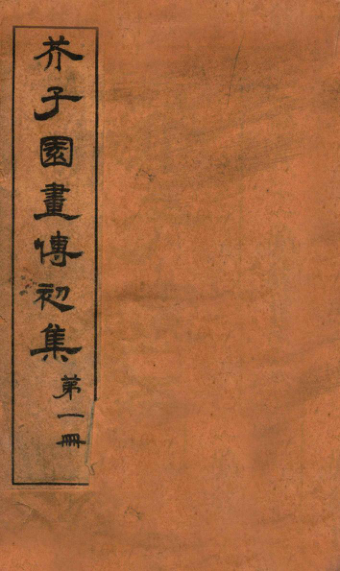 芥子園畫傳初集 第一冊